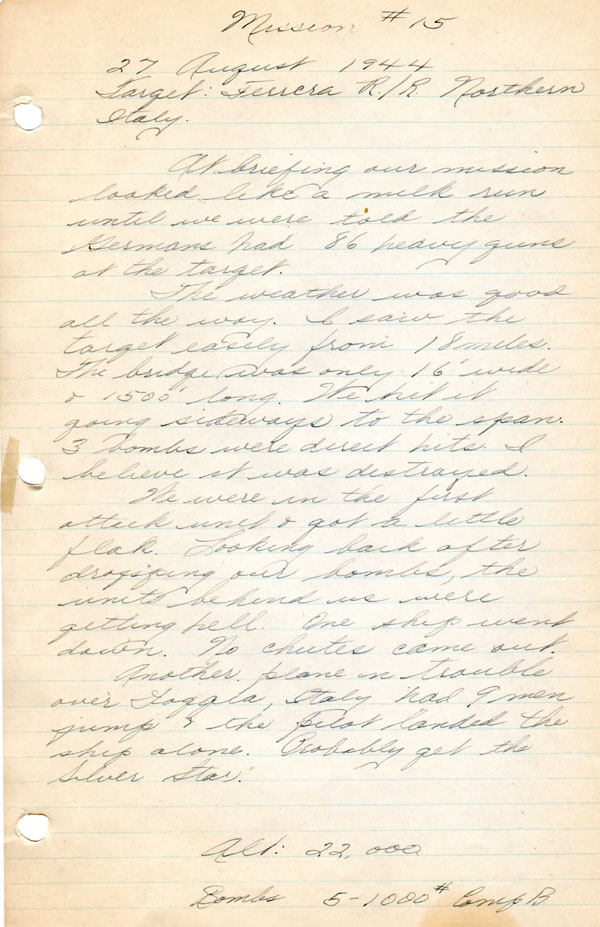 Mission #15
27 August 1944
Target: Ferrera R/R Northern
Italy.
At briefing our mission
looked like a milk run
until we were told the
Germans had 86 heavy guns
at the target.
The weather was good
all the way. I saw the
target easily from 18 miles.
The bridge was only 16' wide
& 1500' long. We hit it
going sideways to the span.
3 bombs were direct hits. I
believe it was destrayed.
We were in the first
attack unit & got a little
flak. Looking back after
dropping our bombs, the
units behind us were
getting hell. One ship went
down. No chutes came out.
Another plane in trouble
over Foggia, Italy had 9 men
jump & the pilot landed the
ship alone. Probably get the
Silver Star.
Alt: 22,000
Bombs 5-1000# Comp B